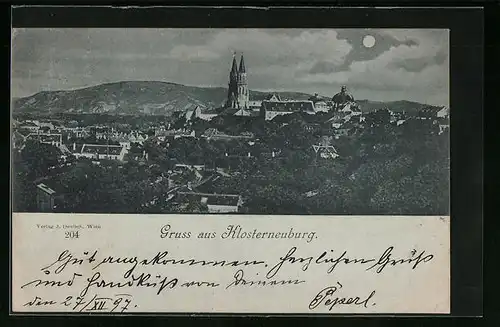 Verlag J. Wien
204
Gruss aus Klosterneuburg.
Gut angekommen. Herzlichen Gruß
und Handkuß von Deinem
den 27/XII 97. Peperl